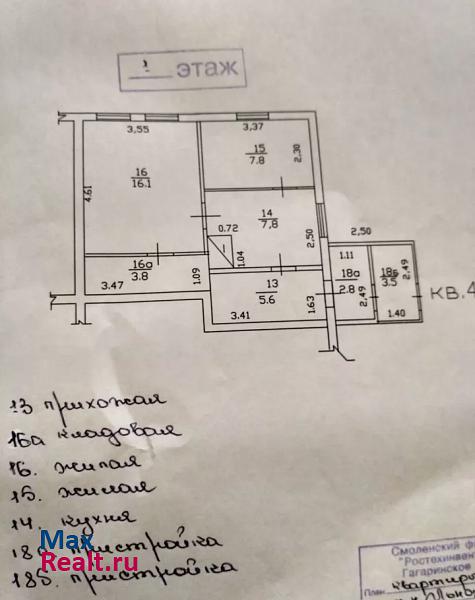 1 этаж
3,55
3,37
16
16.1
15
7.8
2,30
4,61
14
7,8
0.72
1
1.04
2,50
2,50
16а
3.8
3.47
1.09
13
5.6
3.41
1.63
1.11
18а
2.8
2,49
18б
3.5
2,49
1.40
кв.4
13 прихожая
16а кладовая
16. жилая
15. жилая
14. кухня
18а пристройка
18б. пристройка
Max
Realt.ru
Смоленский ф
"Ростехинвен
Гагаринское
План квартир